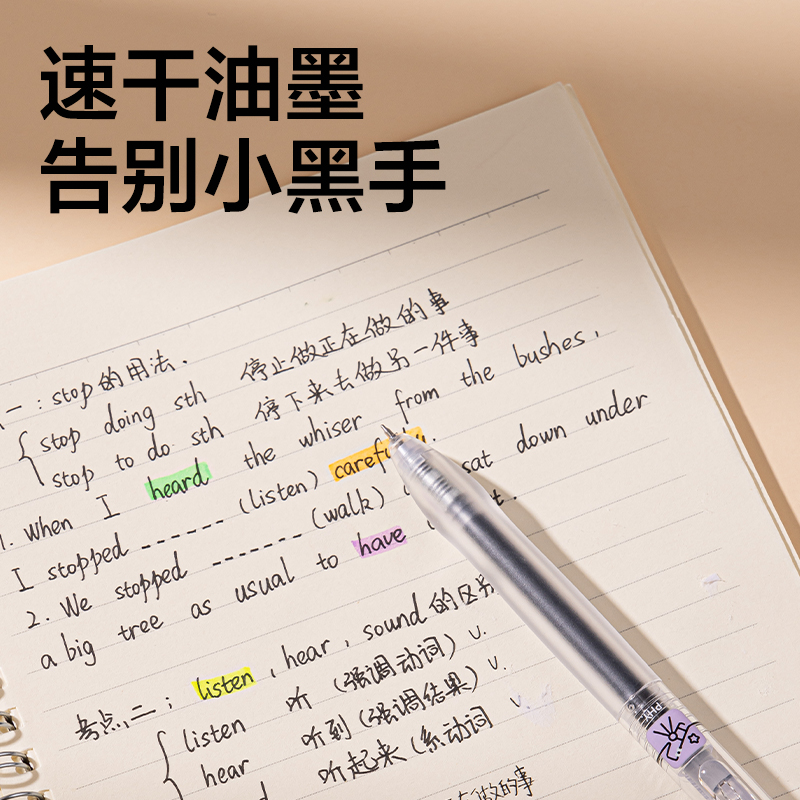 速干油墨
告别小黑手
一：stop的用法．
stop doing sth 停止做正在做的事
stop to do sth 停下来去做另一件事
1. When I heard the whiser from the bushes,
I stopped ------ (listen) carefully.
2. We stopped ------- (walk) sat down under
a big tree as usual to have
考点二：listen, hear, sound的区别
listen 听 (强调动词)
hear 听到 (强调结果)
听起来 (系动词
做的事